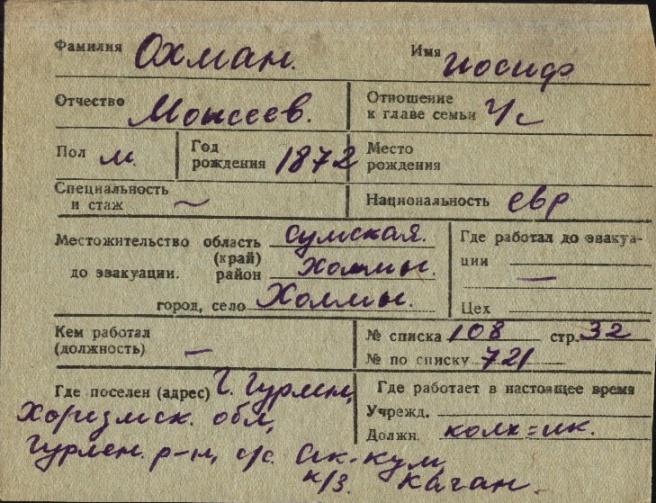 Фамилия Охман. Имя иосиф
Отчество Моисеев. Отношение к главе семьи ч/с
Пол м. Год рождения 1872 Место рождения
Специальность и стаж — Национальность евр
Местожительство до эвакуации. область (край) Сумская.
район Холмы.
город, село Холмы.
Где работал до эвакуации —
Цех
Кем работал (должность) —
№ списка 108 стр. 32
№ по списку 721
Где поселен (адрес) г. Гурлен,
Хорезмск. обл,
Гурлен. р-н, с/с. Ак-кум,
к/з. Каган.
Где работает в настоящее время
Учрежд.
Должн. колх=ик.